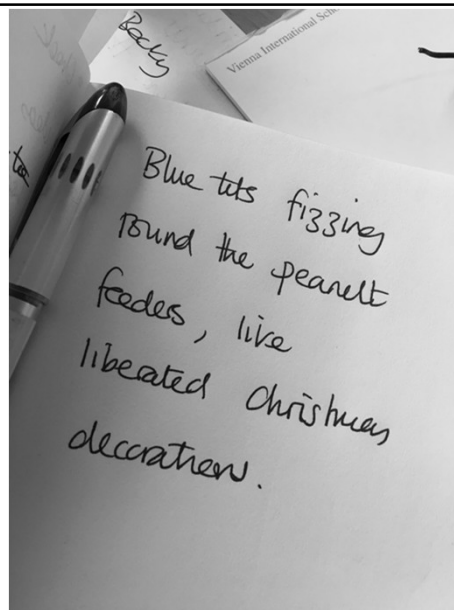 Becky
Vienna International Scho
Blue tits fizzing
round the peanut
feeders, like
liberated Christmas
decorations.